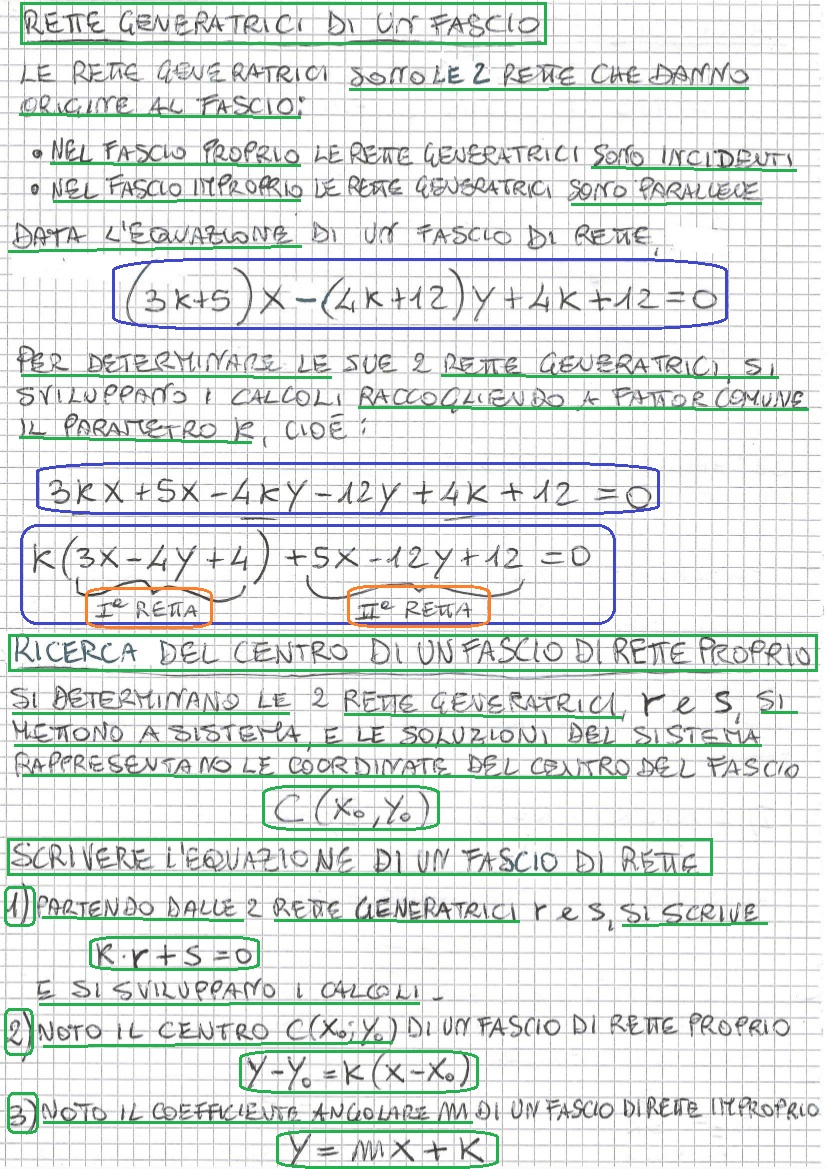 RETTE GENERATRICI DI UN FASCIO
LE RETTE GENERATRICI SONO LE 2 RETTE CHE DANNO
ORIGINE AL FASCIO:
• NEL FASCIO PROPRIO LE RETTE GENERATRICI SONO INCIDENTI
• NEL FASCIO IMPROPRIO LE RETTE GENERATRICI SONO PARALLELE
DATA L'EQUAZIONE DI UN FASCIO DI RETTE,
(3k+5)x-(4k+12)y+4k+12=0
PER DETERMINARE LE SUE 2 RETTE GENERATRICI, SI
SVILUPPANO I CALCOLI RACCOGLIENDO A FATTOR COMUNE
IL PARAMETRO K, CIOÈ:
3kx+5x-4ky-12y+4k+12=0
k(3x-4y+4)+5x-12y+12=0
Iª RETTA IIª RETTA
RICERCA DEL CENTRO DI UN FASCIO DI RETTE PROPRIO
SI DETERMINANO LE 2 RETTE GENERATRICI, r e s, SI
METTONO A SISTEMA, E LE SOLUZIONI DEL SISTEMA
RAPPRESENTANO LE COORDINATE DEL CENTRO DEL FASCIO
C(x₀,y₀)
SCRIVERE L'EQUAZIONE DI UN FASCIO DI RETTE
1) PARTENDO DALLE 2 RETTE GENERATRICI r e s, SI SCRIVE
k·r+s=0
E SI SVILUPPANO I CALCOLI.
2) NOTO IL CENTRO C(x₀;y₀) DI UN FASCIO DI RETTE PROPRIO
y-y₀=k(x-x₀)
3) NOTO IL COEFFICIENTE ANGOLARE m DI UN FASCIO DI RETTE IMPROPRIO
y=mx+k